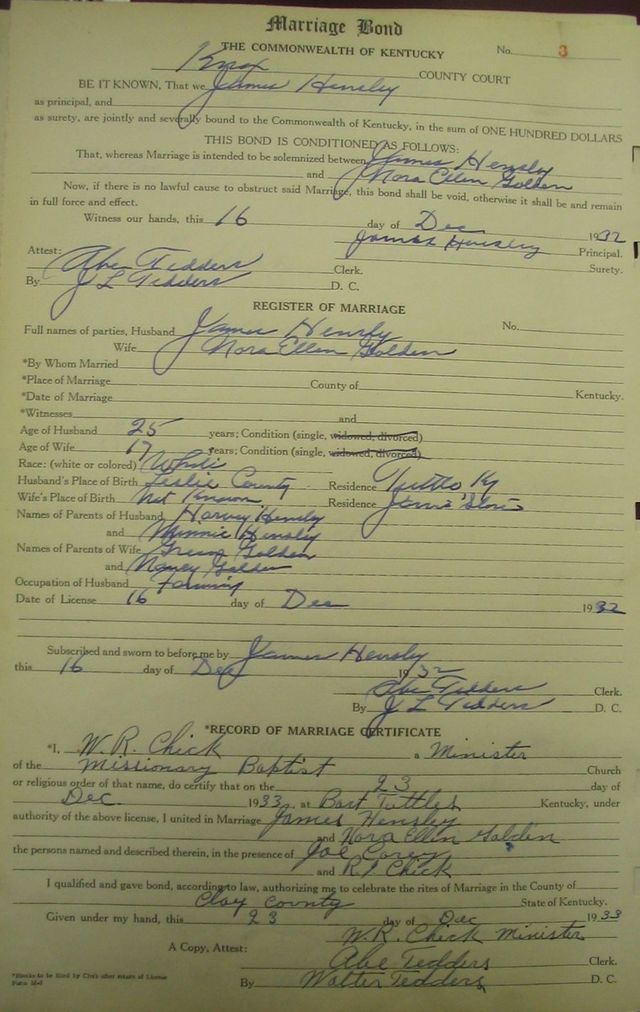 Marriage Bond
THE COMMONWEALTH OF KENTUCKY No. 3
Knox COUNTY COURT
BE IT KNOWN, That we James Hensley
as principal, and
as surety, are jointly and severally bound to the Commonwealth of Kentucky, in the sum of ONE HUNDRED DOLLARS
THIS BOND IS CONDITIONED AS FOLLOWS:
That, whereas Marriage is intended to be solemnized between James Hensley
and Nora Ellen Golden
Now, if there is no lawful cause to obstruct said Marriage, this bond shall be void, otherwise it shall be and remain
in full force and effect.
Witness our hands, this 16 day of Dec 1932
James Hensley Principal.
Attest: Abe Tedders Clerk. Surety.
By J L Tedders D. C.
REGISTER OF MARRIAGE
Full names of parties, Husband James Hensley No.
Wife Nora Ellen Golden
*By Whom Married
*Place of Marriage County of Kentucky.
*Date of Marriage
*Witnesses and
Age of Husband 25 years; Condition (single, widowed, divorced)
Age of Wife 17 years; Condition (single, widowed, divorced)
Race: (white or colored) White
Husband's Place of Birth Leslie County Residence Tuttle Ky
Wife's Place of Birth Not Known Residence
Names of Parents of Husband Harvey Hensley
and Minnie Hensley
Names of Parents of Wife Green Golden
and Nancy Golden
Occupation of Husband Farming
Date of License 16 day of Dec 1932
Subscribed and sworn to before me by James Hensley
this 16 day of Dec 1932
Abe Tedders Clerk.
By J L Tedders D. C.
*RECORD OF MARRIAGE CERTIFICATE
*I, W. R. Chick a Minister
of the Missionary Baptist Church
or religious order of that name, do certify that on the 23 day of
Dec. 1933, at Bart Tuttles Kentucky, under
authority of the above license, I united in Marriage James Hensley
and Nora Ellen Golden
the persons named and described therein, in the presence of Joe Corey
and R. J. Chick
I qualified and gave bond, according to law, authorizing me to celebrate the rites of Marriage in the County of
Clay County State of Kentucky.
Given under my hand, this 23 day of Dec 1933
W. R. Chick Minister
A Copy, Attest: Abe Tedders Clerk.
By Walter Tedders D. C.
*Blanks to be filled by Clerk after return of License